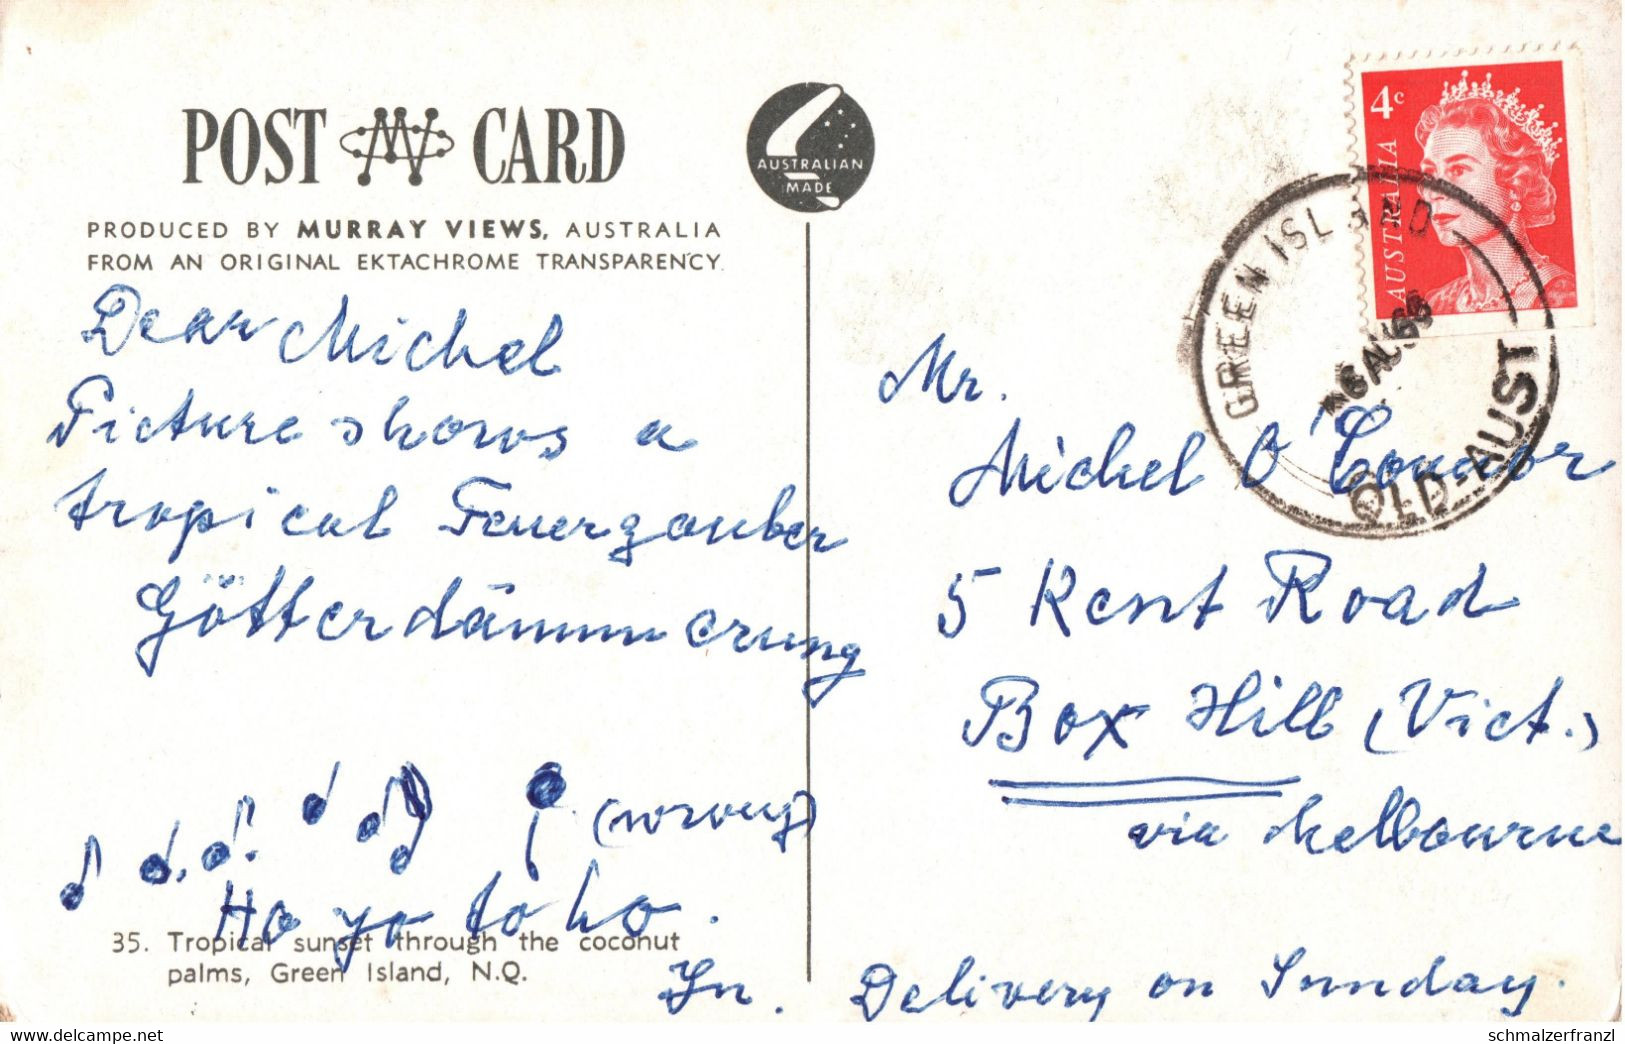 POST CARD
AUSTRALIAN
MADE
PRODUCED BY MURRAY VIEWS, AUSTRALIA
FROM AN ORIGINAL EKTACHROME TRANSPARENCY
4c
AUSTRALIA
GREEN ISLAND
QLD-AUST
Dear Michel
Picture shows a
tropical Feuerzauber
Götterdämmerung
(wrong)
Ho yo to ho.
35. Tropical sunset through the coconut
palms, Green Island, N.Q.
Mr.
Michel O'Connor
5 Kent Road
Box Hill (Vict.)
via Melbourne
Delivery on Sunday.
www.delcampe.net
schmalzerfranzl